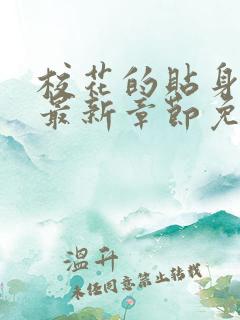 校花的贴身
最新章节免
温升
未经同意禁止转载